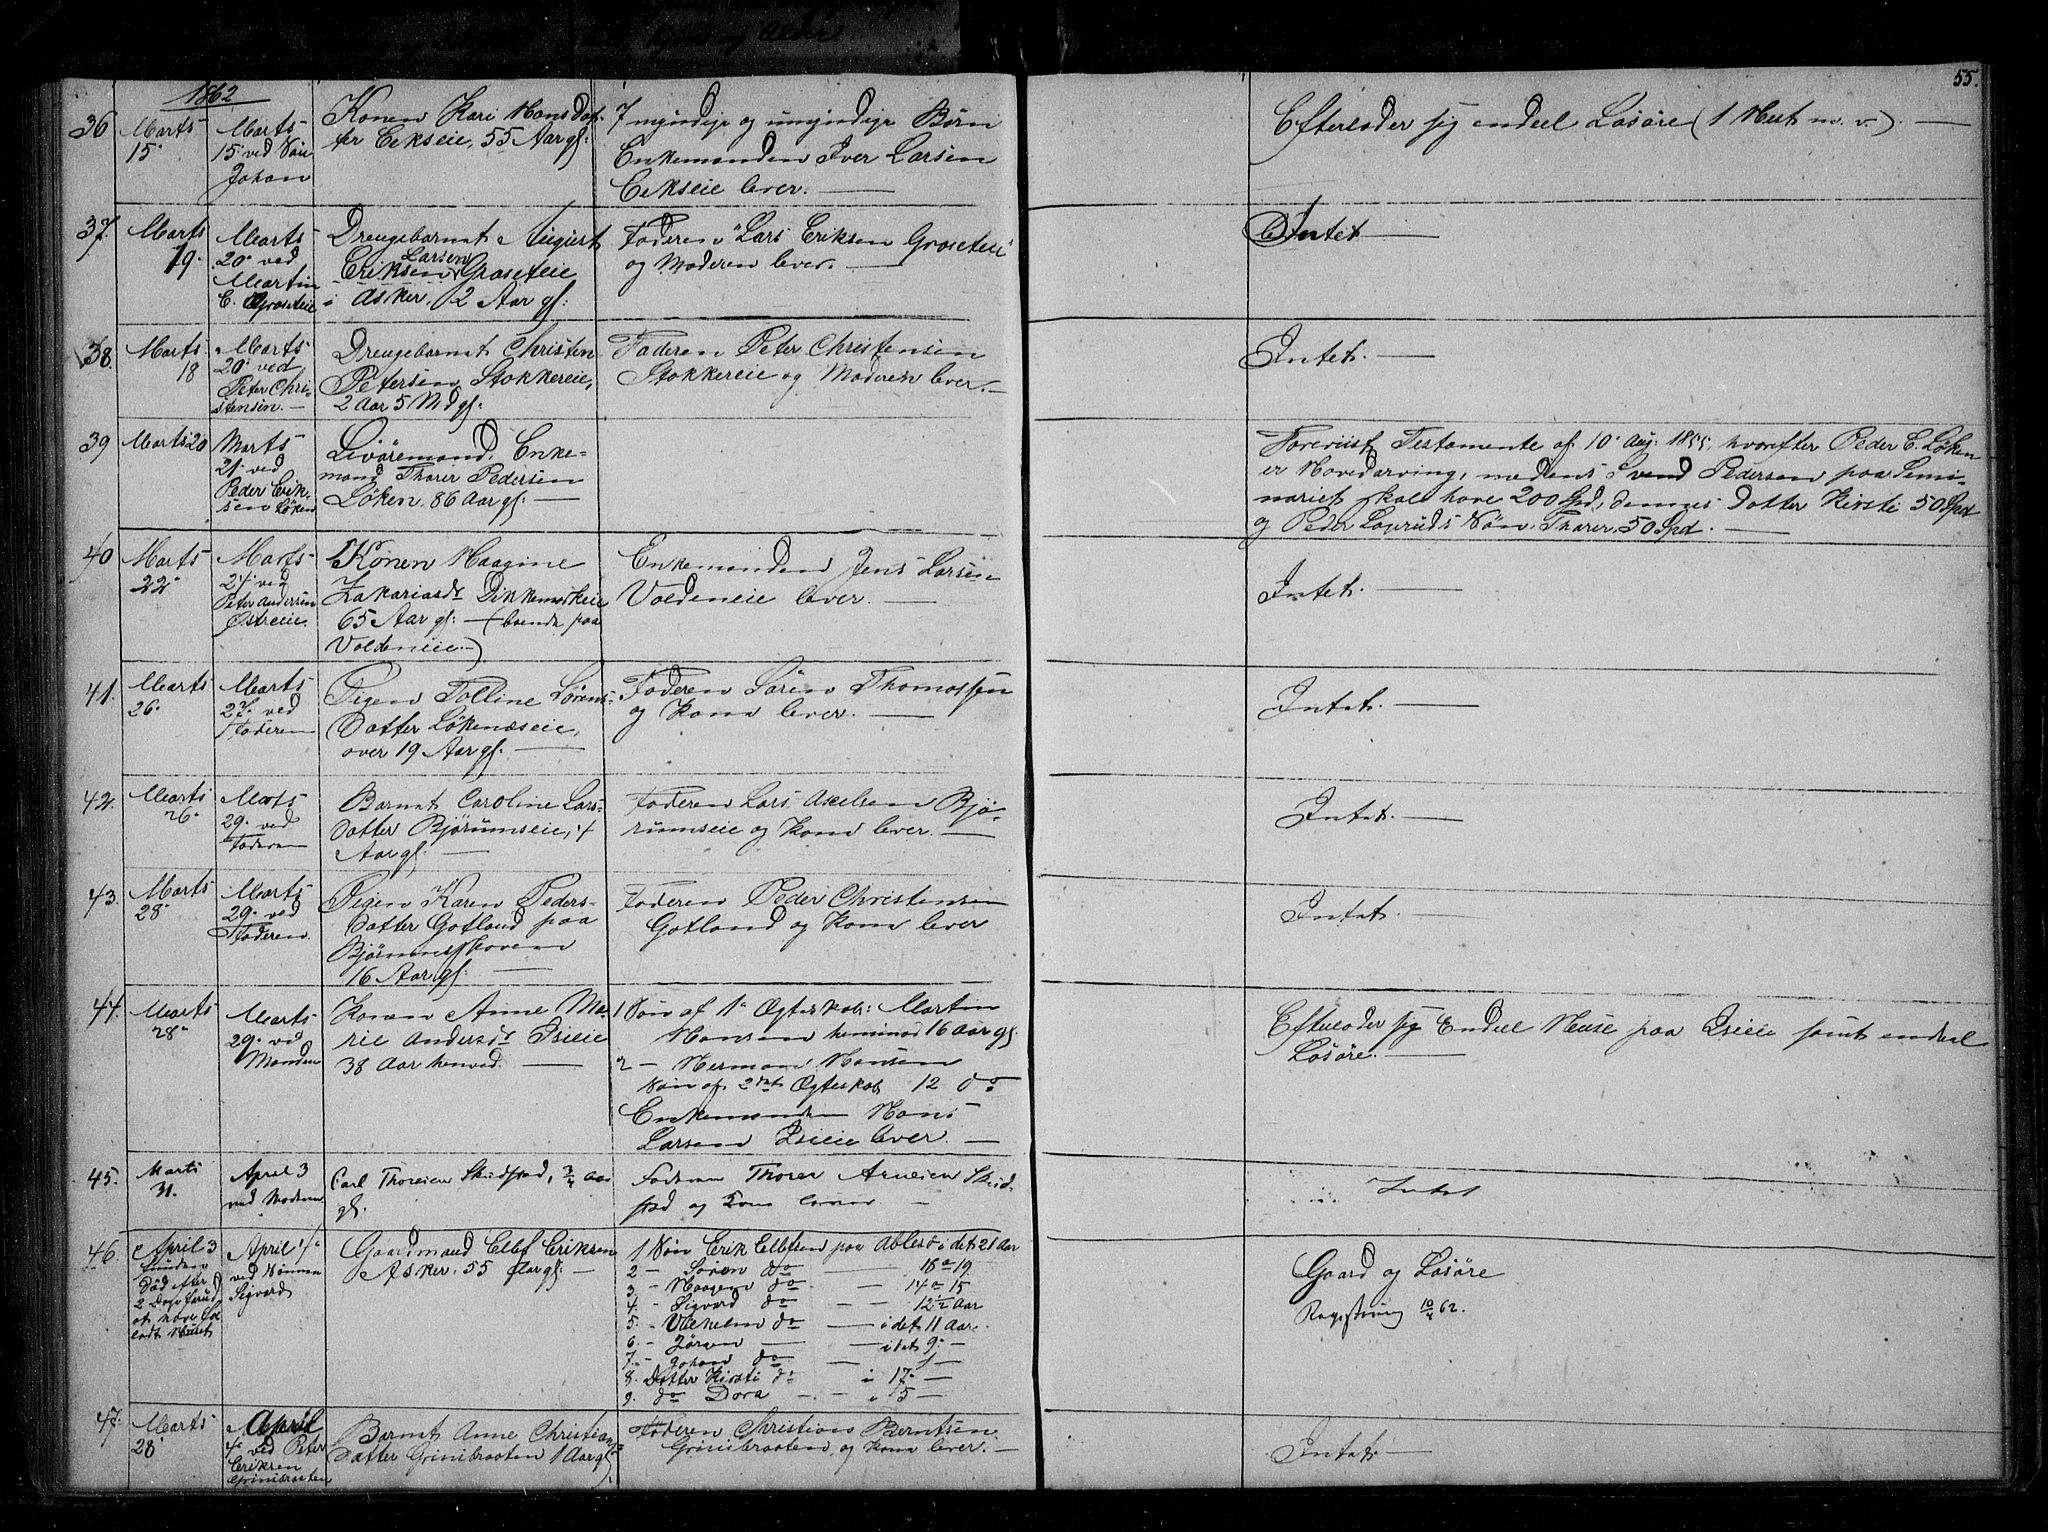 55.
1862
36
Marts
15
Marts
15 ved Søn
Johan
Konen Kari Hansdat-
ter Eekseie, 55 Aar gl:
7 myndige og umyndige Børn
Enkemanden Iver Larsen
Eekseie lever. —
Efterlader sig endeel Løsøre (1 Hest m. v.). —
37.
Marts
19.
Marts
20 ved
Martin
E. Graseteie
Drengebarnet August
Larsen
Eriksen Graseteie
i Asker, 2 Aar gl:
Faderen Lars Eriksen Graseteie
og Moderen lever. —
Intet —
38.
Marts
18
Marts
20 ved
Peter Chri-
stensen. —
Drengebarnet Christen
Petersen Stokkereie,
2 Aar 5 Md gl:
Faderen Peter Christensen
Stokkereie og Moderen lever. —
Intet. —
39
Marts 20
Marts
21 ved
Peder Erik-
sen Løken
Livøremand, Enke-
mand Thorer Pedersen
Løken, 86 Aar gl: —
Foreviist Testamente af 10 Aug: 1855, hvorefter Peder E. Løken
er Hovedarving, medens Svend Pedersen paa Semi-
nariet skal have 200 Spd, dennes Datter Kirsti 50 Spd
og Peder Søn, Thorer, 50 Spd. —
40
Marts
22
Marts
24 ved
Peter Andersen
Østreeie.
Konen Haagine
Zakariasdr Dikkemarkeie
65 Aar gl: — (boende paa
Voldeneie. —)
Enkemanden Jens Larsen
Voldeneie lever. —
Intet. —
41.
Marts
26.
Marts
27. ved
Faderen
Pigen Tolline Sørens-
datter Løkenæseie,
over 19 Aar gl: —
Faderen Søren Thomassen
og Kone lever. —
Intet. —
42.
Marts
26.
Marts
29. ved
Faderen
Barnet Caroline Lars-
datter Bjørumseie, 4
Aar gl. —
Faderen Lars Axelsen Bjø-
rumseie og Kone lever. —
Intet. —
43.
Marts
28
Marts
29. ved
Faderen.
Pigen Karen Peders-
datter Gotland paa
Bjørumskoven
16 Aar gl: —
Faderen Peder Christensen
Gotland og Kone lever
Intet. —
44.
Marts
28
Marts
29. ved
Manden
Konen Anne Ma-
rie Andersdr Isieie
38 Aar henved. —
1 Søn af 1e Ægteskab: Martin
Hansen henimod 16 Aar gl:
2 — Herman Hansen
Søn af 2det Ægteskab 12 do
Enkemanden Hans
Larsen Isieie lever. —
Efterlader sig Endeel Huse paa Isieie samt endeel
Løsøre. —
45.
Marts
31.
April 3
ved Moderen
Carl Thoresen Skustad, 3/4 Aar
gl.
Faderen Thorer Arnesen
og Kone lever —
Intet
46.
April 3
Død efter
2 Dage
at have
ladt Huset
April 4
ved Sønnen
Sigvard
Gaardmand Ellef Eriksen
Asker. 55 Aar gl: —
1 Søn Erik Ellefsen paa i det 21 Aar
2 — Søren do — 18 a 19
3 — Haagen do — 14 a 15
4. — Sigvard do — — 12 1/2 Aar
5. — Vilhelm do — i det 11 Aar.
6 — Jørgen — i det 9 —
7. — Johan do — 4 —
8. Datter Kirsti do i 17 —
9. do Dora — — i 5 —
Gaard og Løsøre
Registrering 10/4 62.
47.
Marts
28
April
4 ved Peter
Eriksen
Grinibraaten
Barnet Anne Christians-
datter Grinibraaten 1 Aar gl:
Faderen Christian Berntsen
Grinibraaten og Kone lever. —
Intet. —